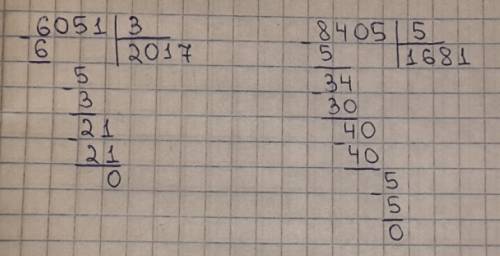 6051 3
6 2017
5
3
21
21
0
8405 5
5 1681
34
30
40
40
5
5
0